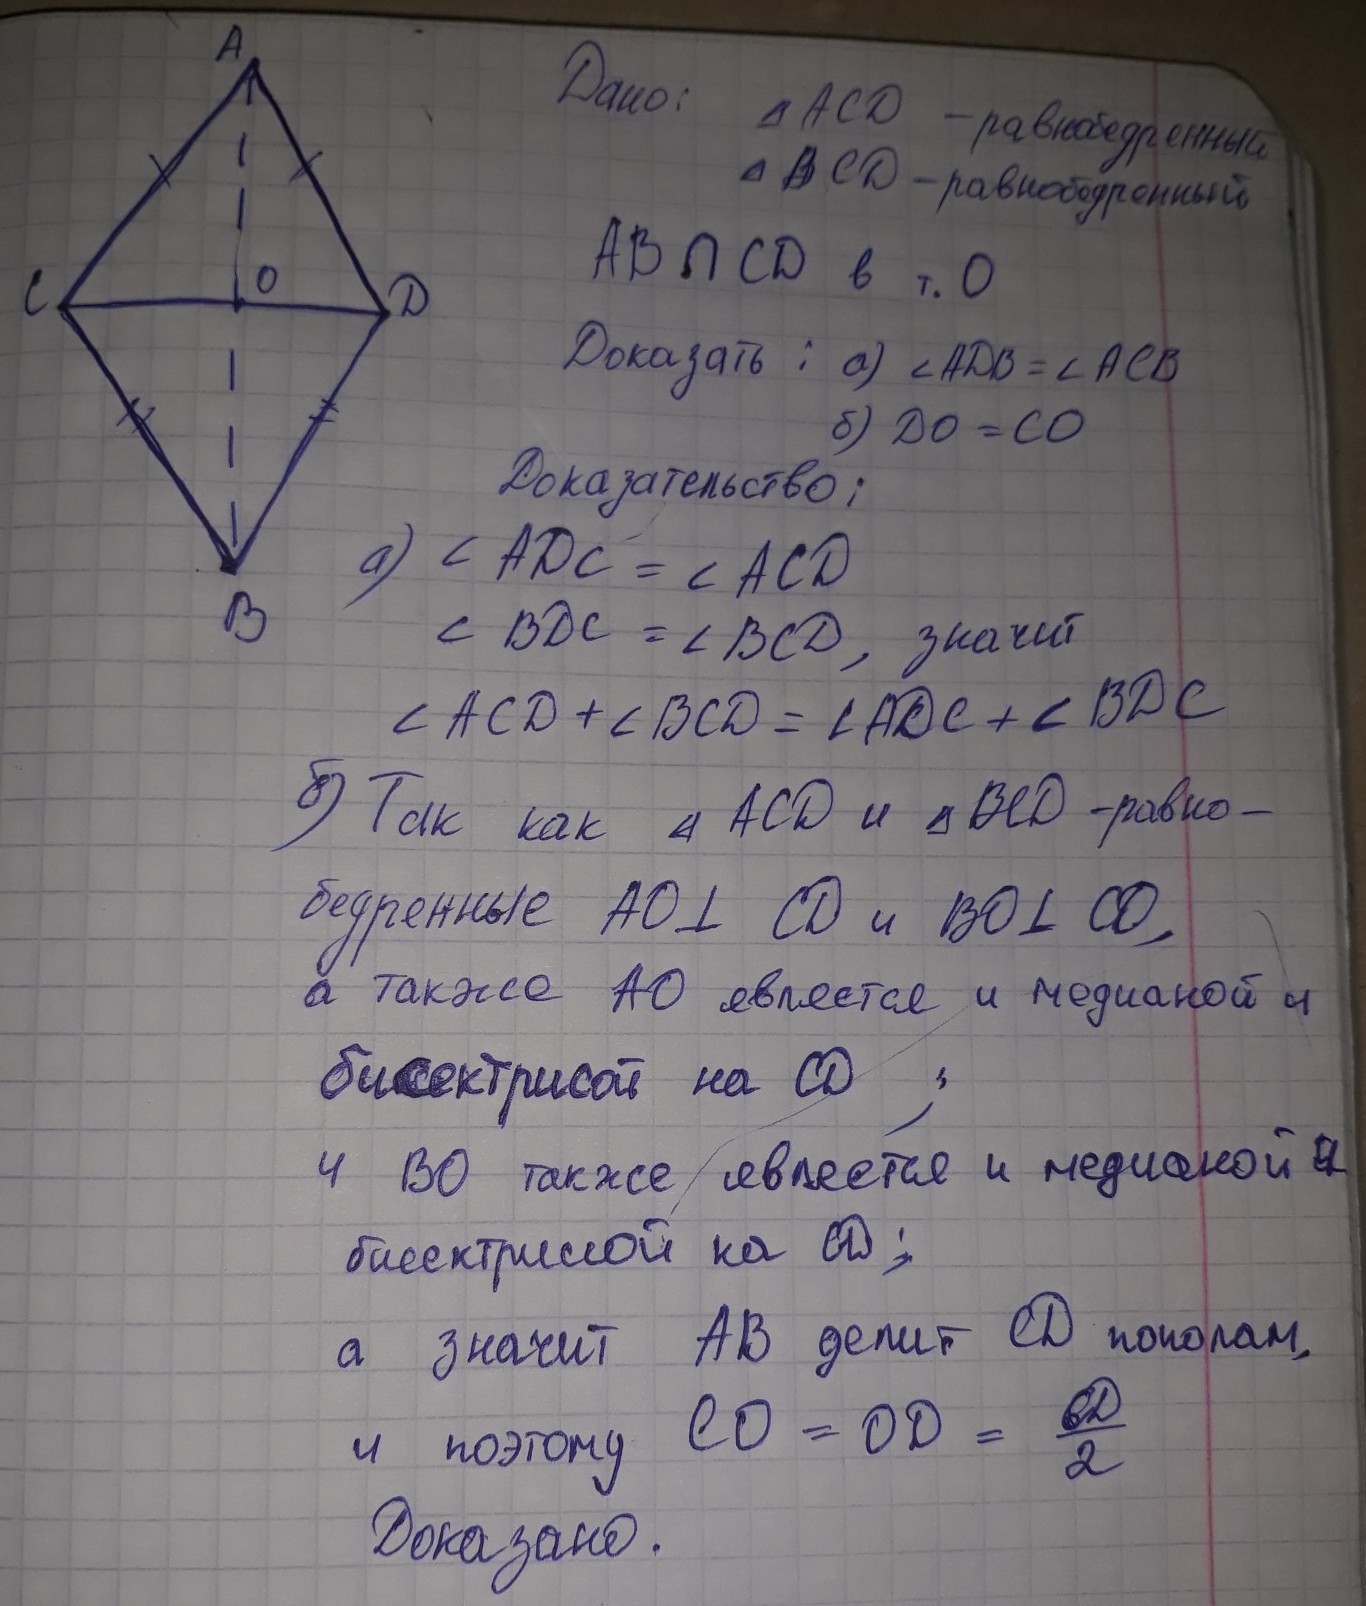 A
C
O
D
B
Дано: △ACD - равнобедренный
△BCD - равнобедренный
AB ∩ CD в т. O
Доказать: а) ∠ADB = ∠ACB
б) DO = CO
Доказательство:
а) ∠ADC = ∠ACD
∠BDC = ∠BCD, значит
∠ACD + ∠BCD = ∠ADC + ∠BDC
б) Так как △ACD и △BCD - равно-
бедренные AO⊥ CD и BO⊥ CD,
а также AO является и медианой и
бисектрисой на CD ;
и BO также является и медианой и
бисектрисой на CD;
а значит AB делит CD пополам,
и поэтому CO = OD = CD/2
Доказано.